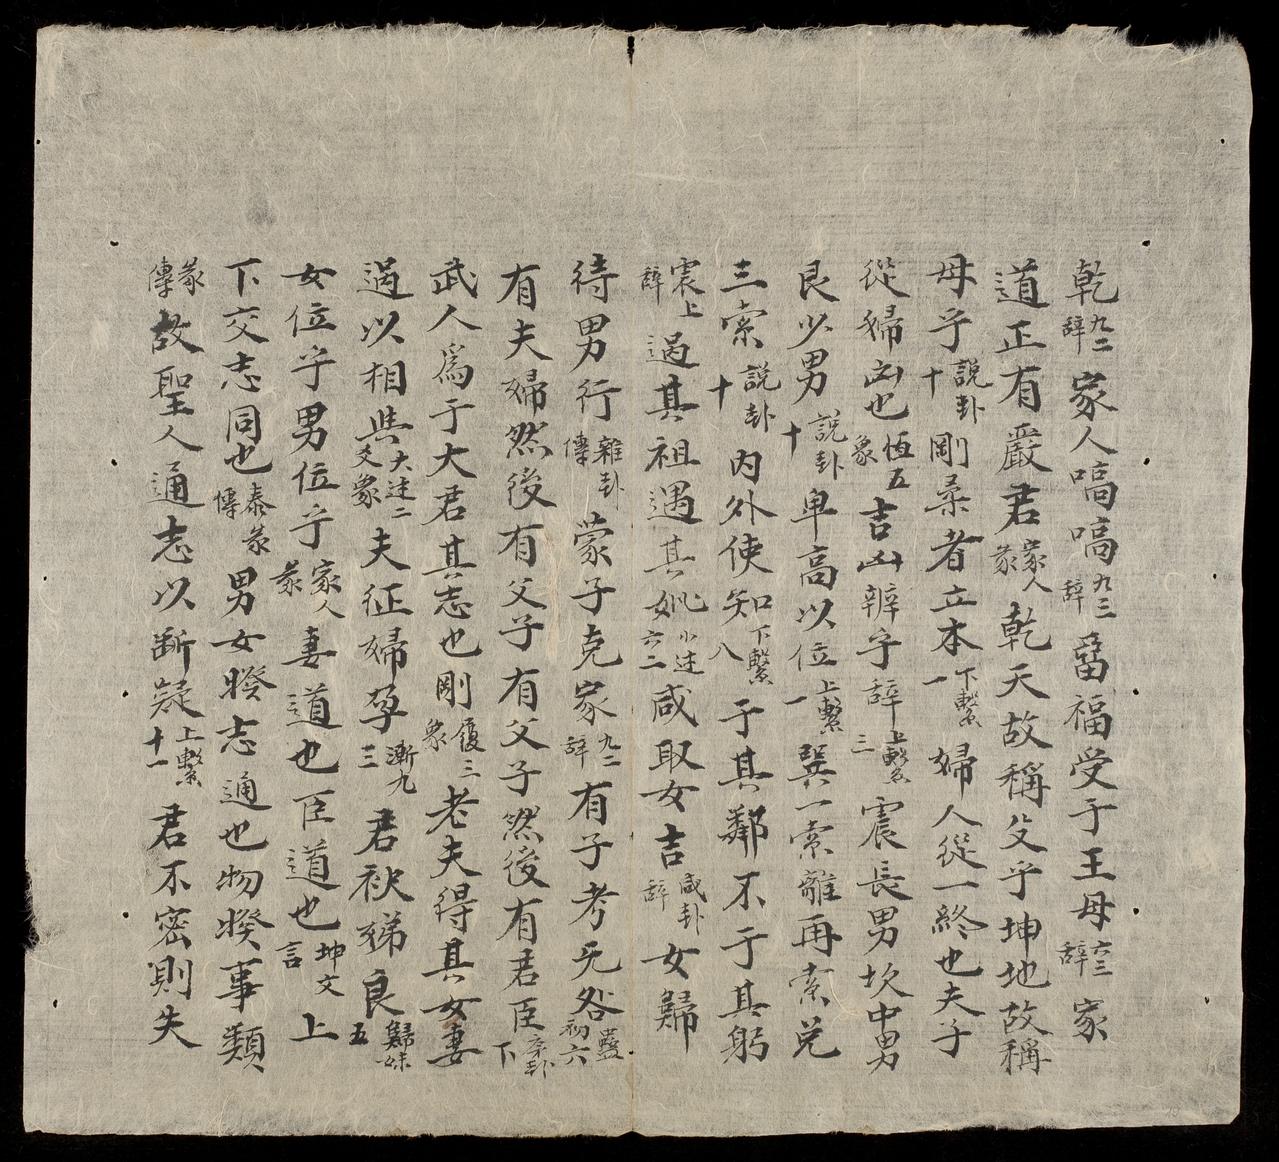 乾九二辭家人嗃嗃九三辭晋福受于王母六二辭家
道正有嚴君家人彖乾天故稱父乎坤地故稱
母乎說卦十剛柔者立本下繫一婦人從一終也夫子
從婦凶也恆五象吉凶辨乎辭上繫三震長男坎中男
艮少男說卦十卑高以位上繫一巽一索離再索兌
三索說卦十內外使知下繫八于其鄰不于其躬
震上辭過其祖遇其妣小过六二咸取女吉咸卦辭女歸
待男行雜卦傳蒙子克家九二辭有子考无咎蠱初六
有夫婦然後有父子有父子然後有君臣序卦下
武人爲于大君其志也剛履三象老夫得其女妻
過以相与大过二爻象夫征婦孕漸九三君袂娣良歸妹五
女位乎男位乎家人彖妻道也臣道也坤文言上
下交志同也泰彖傳男女睽志通也物睽事類
彖傳故聖人通志以断疑上繫十一君不密則失